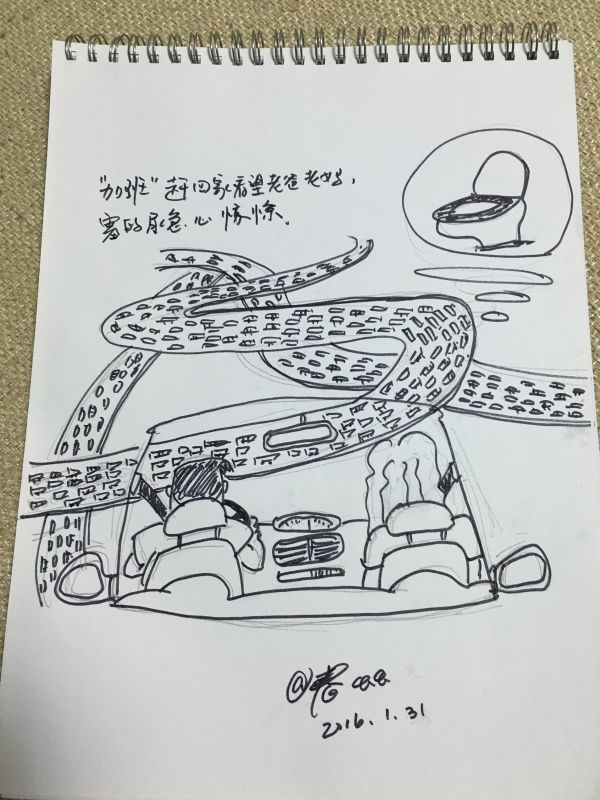 "加班"赶回家看望老爸老妈,
害的尿急.心
@春
2016.1.31